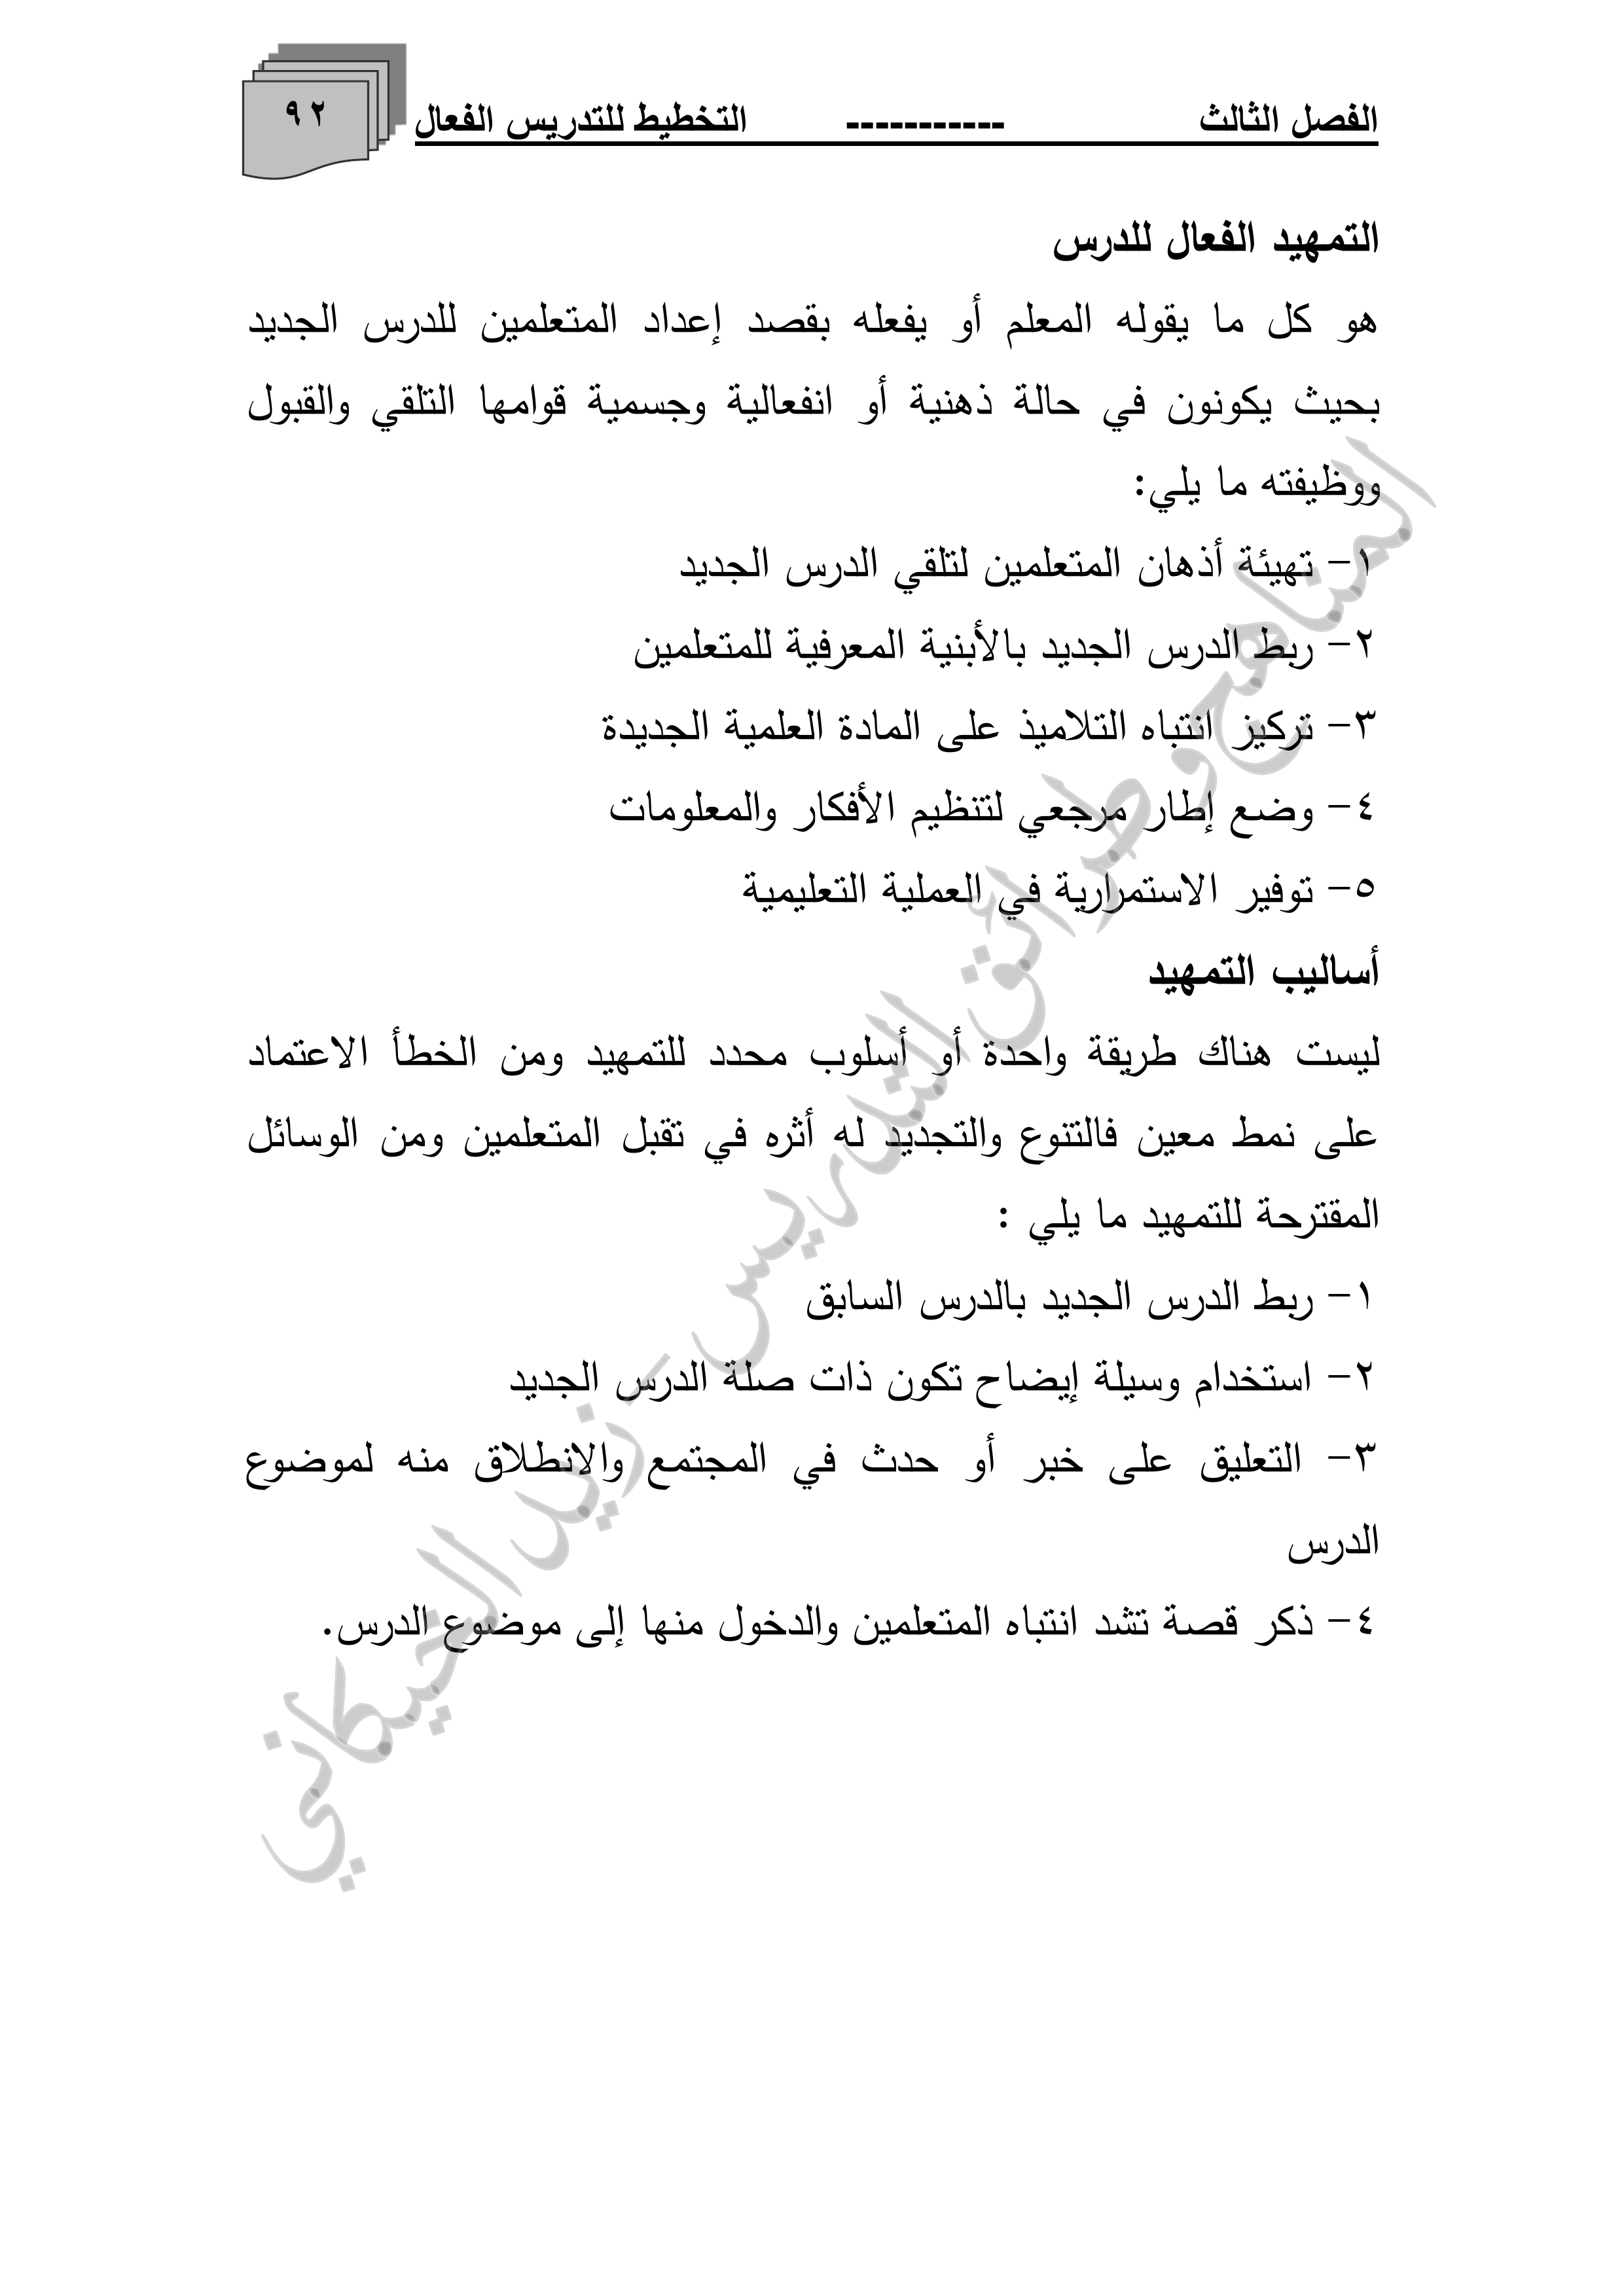 الفصل الثالث ----------- التخطيط للتدريس الفعال
٩٢
التمهيد الفعال للدرس
هو كل ما يقوله المعلم أو يفعله بقصد إعداد المتعلمين للدرس الجديد
بحيث يكونون في حالة ذهنية أو انفعالية وجسمية قوامها التلقي والقبول
ووظيفته ما يلي:
١- تهيئة أذهان المتعلمين لتلقي الدرس الجديد
٢- ربط الدرس الجديد بالأبنية المعرفية للمتعلمين
٣- تركيز انتباه التلاميذ على المادة العلمية الجديدة
٤- وضع إطار مرجعي لتنظيم الأفكار والمعلومات
٥- توفير الاستمرارية في العملية التعليمية
أساليب التمهيد
ليست هناك طريقة واحدة أو أسلوب محدد للتمهيد ومن الخطأ الاعتماد
على نمط معين فالتنوع والتجديد له أثره في تقبل المتعلمين ومن الوسائل
المقترحة للتمهيد ما يلي :
١- ربط الدرس الجديد بالدرس السابق
٢- استخدام وسيلة إيضاح تكون ذات صلة الدرس الجديد
٣- التعليق على خبر أو حدث في المجتمع والانطلاق منه لموضوع
الدرس
٤- ذكر قصة تشد انتباه المتعلمين والدخول منها إلى موضوع الدرس.
المناهج وطرائق التدريس - زيد الخيكاني